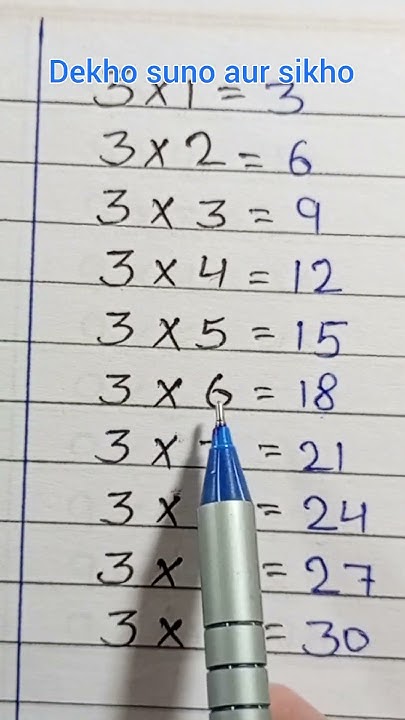 Dekho suno aur sikho
3 x 1 = 3
3 x 2 = 6
3 x 3 = 9
3 x 4 = 12
3 x 5 = 15
3 x 6 = 18
3 x = 21
3 x = 24
3 x = 27
3 x = 30